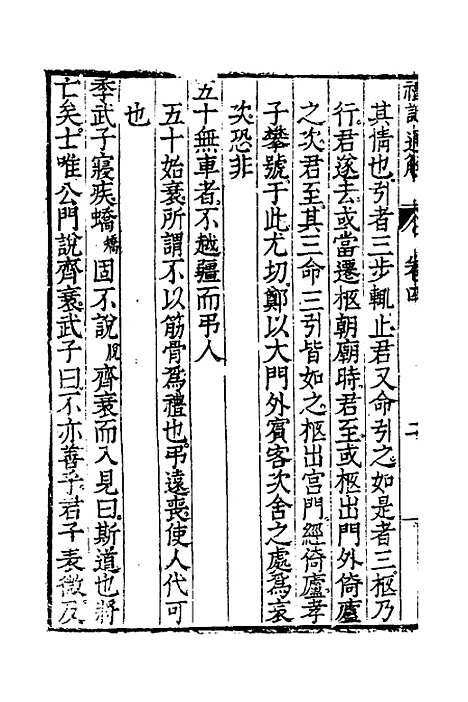 禮記通解 卷四
其情也引者三步輒止君又命引之如是者三柩乃
行君遂去或當遷柩朝廟時君至或柩出門外倚廬
之次君至其三命三引皆如之柩出宮門經倚廬孝
子攀號于此尤切鄭以大門外賓客次舍之處爲哀
次恐非
五十無車者不越疆而弔人
五十始衰所謂不以筋骨爲禮也弔遠喪使人代可
也
季武子寢疾蟜矯固不說脫齊衰而入見曰斯道也將
亡矣士唯公門說齊衰武子曰不亦善乎君子表微及